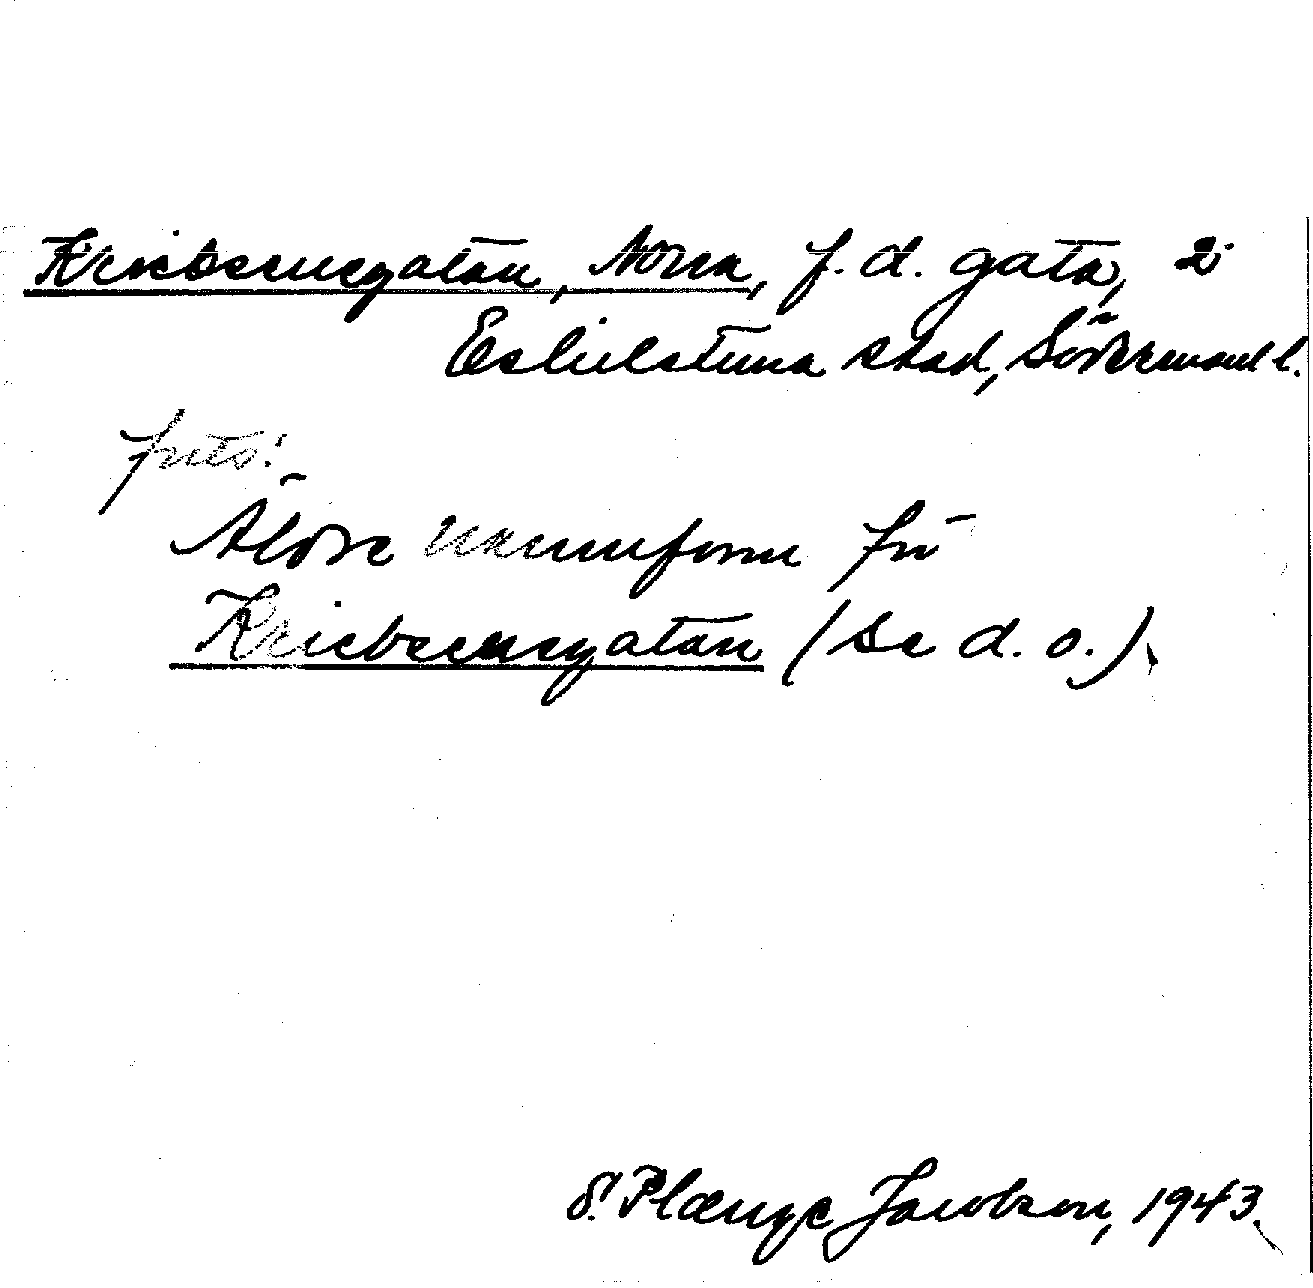 Kriebsensgatan, Norra, f. d. gata, i
Eskilstuna stad, Södermanl l.
Äldre namnform för
Kriebsensgatan (se d. o.).
S. Plænge Jacobson, 1943.